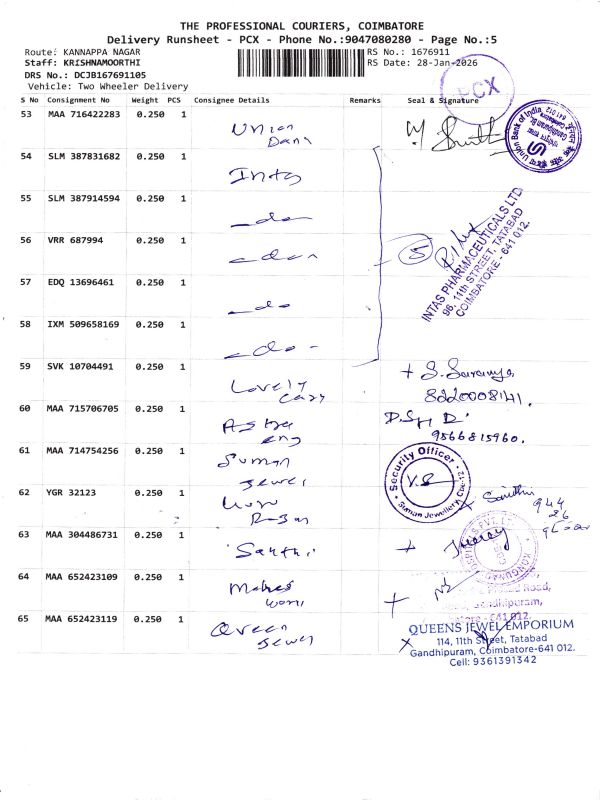 THE PROFESSIONAL COURIERS, COIMBATORE
Delivery Runsheet - PCX - Phone No.:9047080280 - Page No.:5
Route: KANNAPPA NAGAR
RS No.: 1676911
Staff: KRISHNAMOORTHI
RS Date: 28-Jan-2026
DRS No.: DCJB167691105
Vehicle: Two Wheeler Delivery
PCX
S No Consignment No Weight PCS Consignee Details Remarks Seal & Signature
53 MAA 716422283 0.250 1
Union
Union Bank of India
641 012
54 SLM 387831682 0.250 1
Intas
55 SLM 387914594 0.250 1
- do -
56 VRR 687994 0.250 1
- do -
5
INTAS PHARMACEUTICALS LTD
96, 11th STREET, TATABAD
COIMBATORE - 641 012.
57 EDQ 13696461 0.250 1
- do
58 IXM 509658169 0.250 1
- do -
59 SVK 10704491 0.250 1
Lovely
S. Saranya
8220008141.
60 MAA 715706705 0.250 1
eng
9566815960.
61 MAA 714754256 0.250 1
Suman
Jewel
Security Officer
V.S
Suman Jewellery Cbe-12
62 YGR 32123 0.250 1
944
26
63 MAA 304486731 0.250 1
Santhi
64 MAA 652423109 0.250 1
Gandhipuram,
641 012.
65 MAA 652423119 0.250 1
Queen
Jewel
QUEENS JEWEL EMPORIUM
114, 11th Street, Tatabad
Gandhipuram, Coimbatore-641 012.
Cell: 9361391342